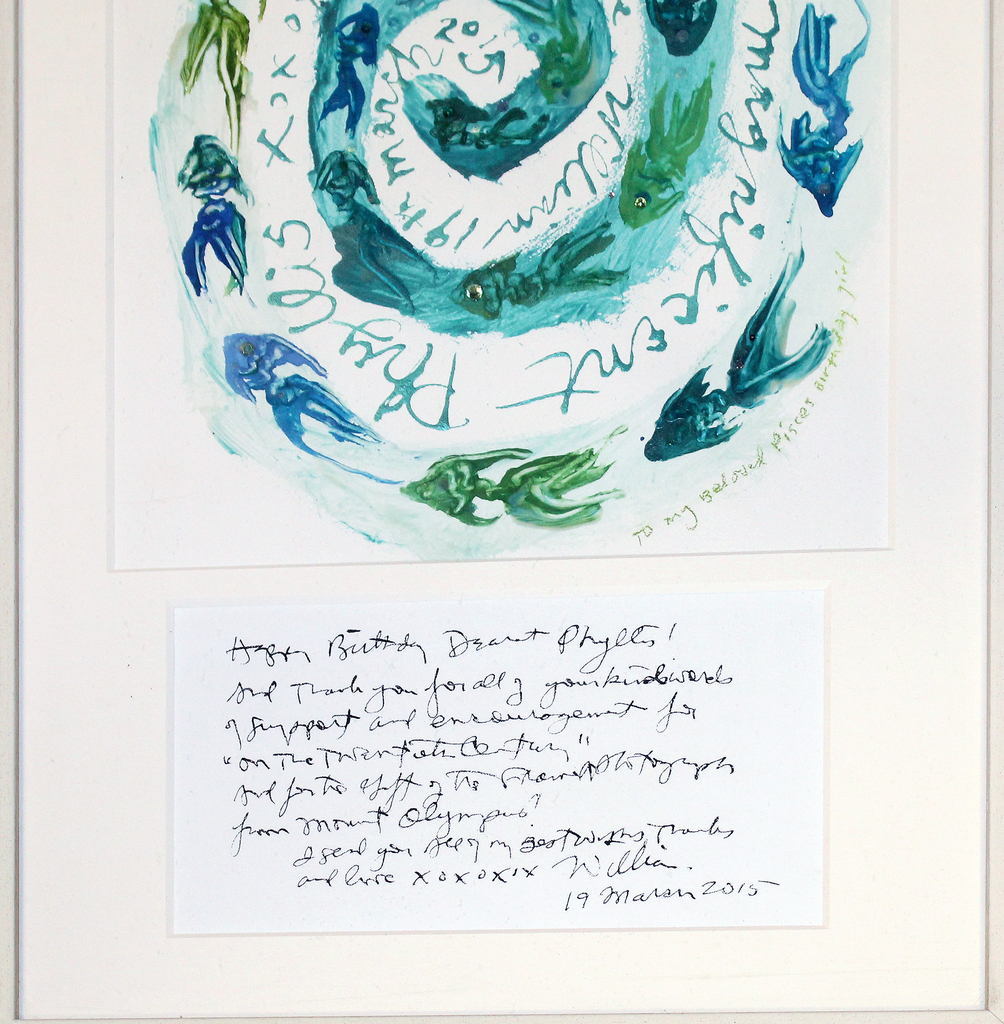 magnificent
Phyllis xoxo
William
19th march 2015
To my Beloved Pisces Birthday girl
Happy Birthday Dearest Phyllis!
And Thank you for all of your kind words
of support and encouragement for
"On The Twentieth Century"
And for the gift of the Framed Photograph
from Mount Olympus!
I send you all of my Best Wishes, Thanks
and love xoxoxox William.
19 March 2015